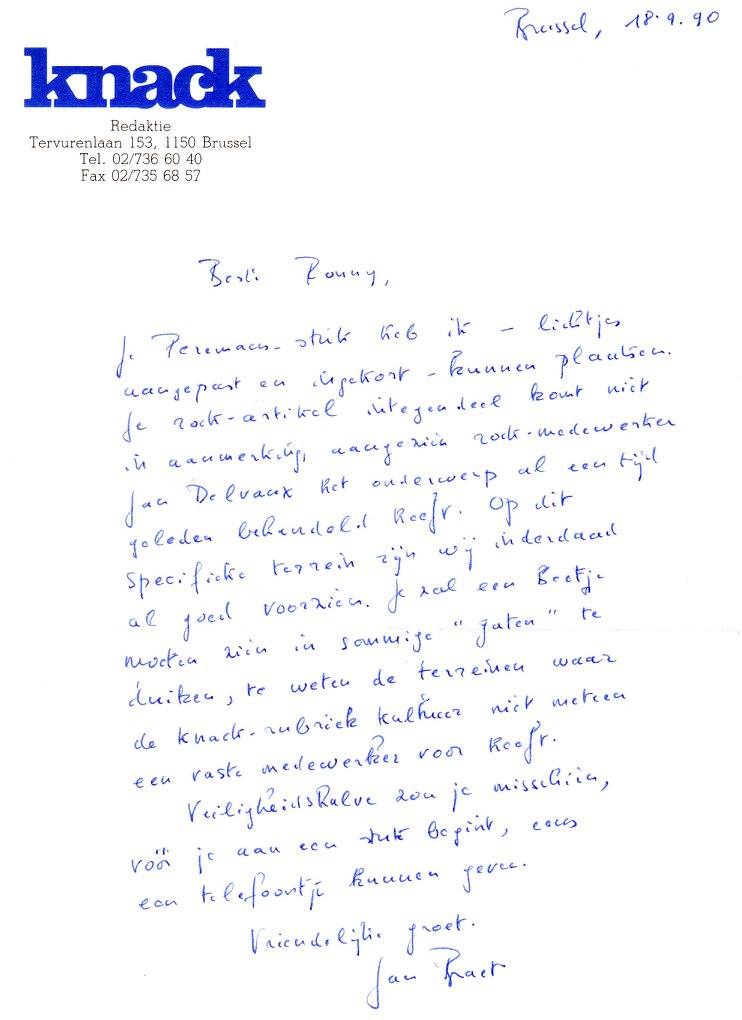 Brussel, 18.9.90
knack
Redaktie
Tervurenlaan 153, 1150 Brussel
Tel. 02/736 60 40
Fax 02/735 68 57
Beste Ronny,
Je Peremans-stuk heb ik – lichtjes
aangepast en ingekort – kunnen plaatsen.
Je rock-artikel integendeel komt niet
in aanmerking, aangezien rock-medewerker
Jan Delvaux het onderwerp al een tijd
geleden behandeld heeft. Op dit
specifieke terrein zijn wij inderdaad
al goed voorzien. Je zal een beetje
moeten zien in sommige "gaten" te
duiken, te weten de terreinen waar
de Knack-rubriek Kultuur niet meteen
een vaste medewerker voor heeft.
Veiligheidshalve zou je misschien,
vóór je aan een stuk begint, eens
een telefoontje kunnen geven.
Vriendelijke groet.
Jan Braet